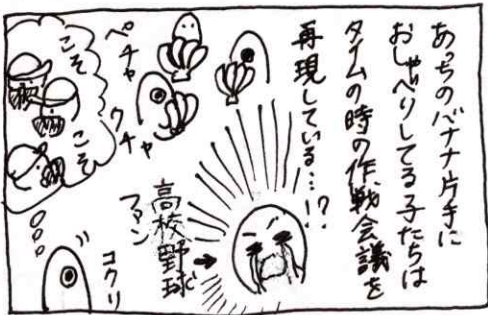 あっちのバナナ片手に
おしゃべりしてる子たちは
タイムの時の作戦会議を
再現している…!?
ペチャ
クチャ
こそ
こそ
高校野球
ファン
コクリ